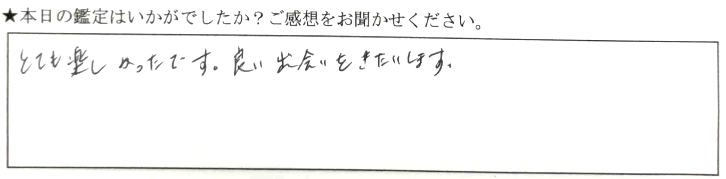 ★本日の鑑定はいかがでしたか？ご感想をお聞かせください。
とても楽しかったです。良い出会いをきたいします。